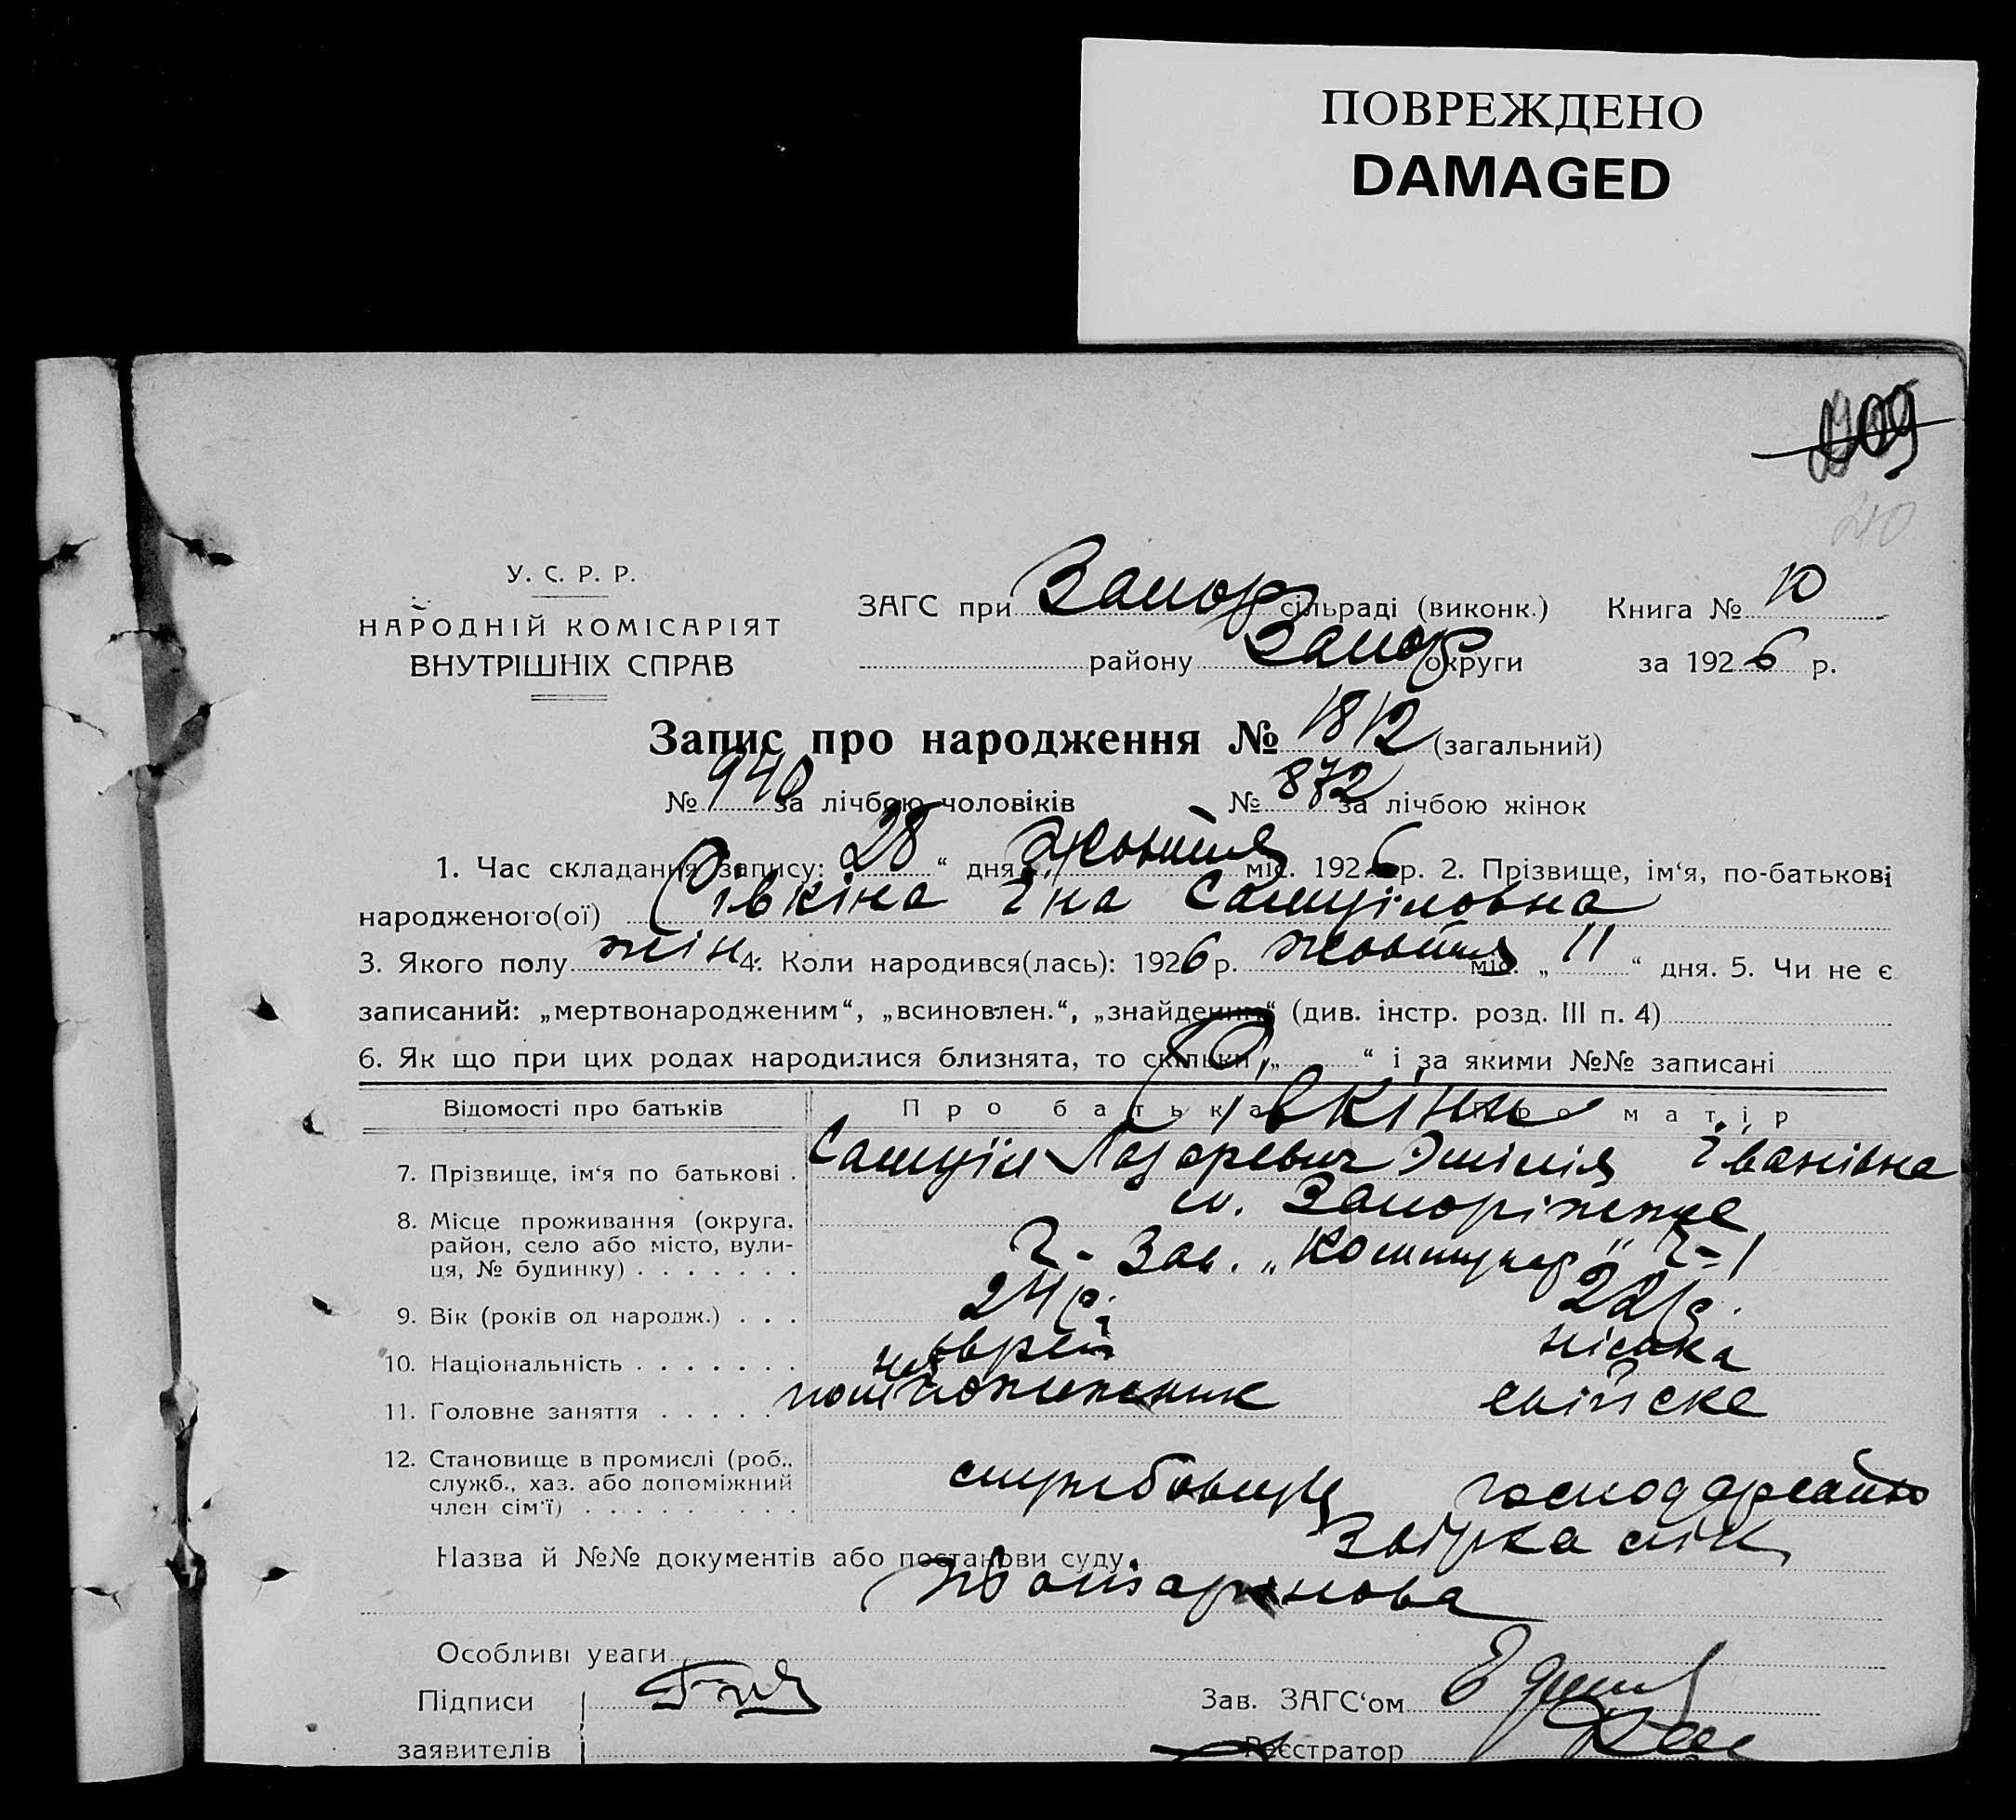 ПОВРЕЖДЕНО
DAMAGED
209
40
У. С. Р. Р.
НАРОДНІЙ КОМІСАРІЯТ
ВНУТРІШНІХ СПРАВ
ЗАГС при Запор сільраді (виконк.) Книга № 10
району Запор округи за 1926 р.
Запис про народження № 1812 (загальний)
№ 940 за лічбою чоловіків № 872 за лічбою жінок
1. Час складання запису: 28 “ дня „ жовтня міс. 1926 р. 2. Прізвище, ім‘я, по-батькові
народженого(ої) Рівкіна Іна Самуіловна
3. Якого полу жін. 4. Коли народився(лась): 1926 р. жовтня міс. „ 11 “ дня. 5. Чи не є
записаний: „мертвонародженим“, „всиновлен.“, „знайденим“ (див. інстр. розд. III п. 4)
6. Як що при цих родах народилися близнята, то скільки „ “ і за якими №№ записані
Відомості про батьків Про батька Про матір
Рівкіни
7. Прізвище, ім‘я по батькові . Самуіл Лазаревич Эмілія Іванівна
8. Місце проживання (округа, м. Запоріжжє
район, село або місто, вули-
ця, № будинку) . . . . . . . Зав. „Коммунар“
9. Вік (років од народж.) . . . 24 р. 22 р.
10. Національність . . . . . . . еврей німка
11. Головне заняття . . . . . . пом
12. Становище в промислі (роб.,
служб., хаз. або допоміжний службовець господарство
член сім‘ї) . . . . . . . . .
Назва й №№ документів або постанови суду
Особливі уваги
Підписи Зав. ЗАГС‘ом
заявителів Реєстратор